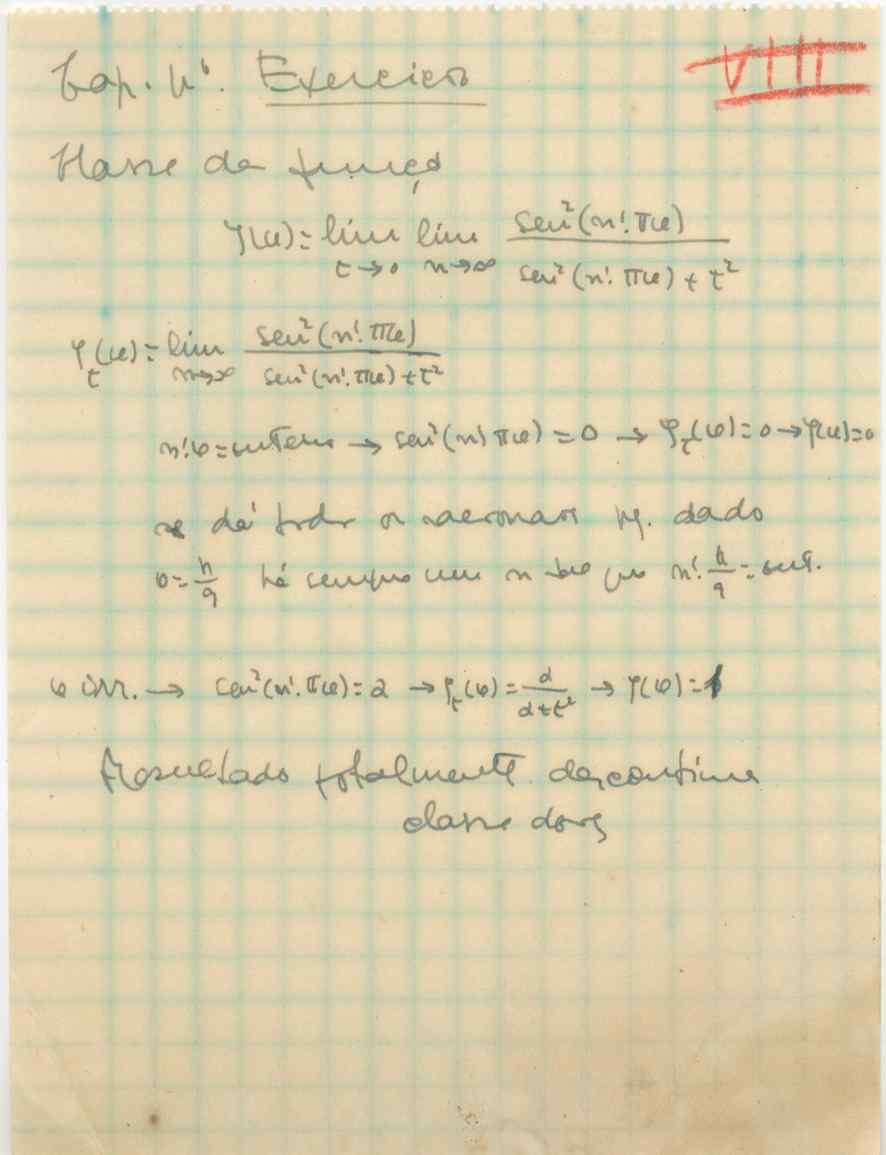 Cap. Exercicios
VIII
Classe da função
φ(x) = lim lim sen²(n!πx) / sen²(n!πx) + t²
t→0 n→∞
φ_t(x) = lim sen²(n!πx) / sen²(n!πx) + t²
n→∞
n!x = inteiro → sen²(n!πx) = 0 → φ_t(x) = 0 → φ(x) = 0
se dá todos os racionais pq. dado
x = p/q há sempre um n tal que n! p/q = int.
x irr. → sen²(n!πx) = α → φ_t(x) = α / α + t² → φ(x) = 1
Resultado totalmente descontinua
classe dois